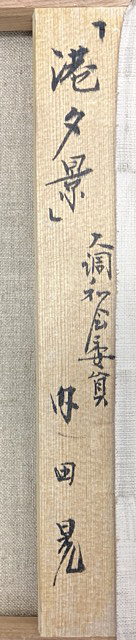 「港夕景」
大調和会委員
内田晃